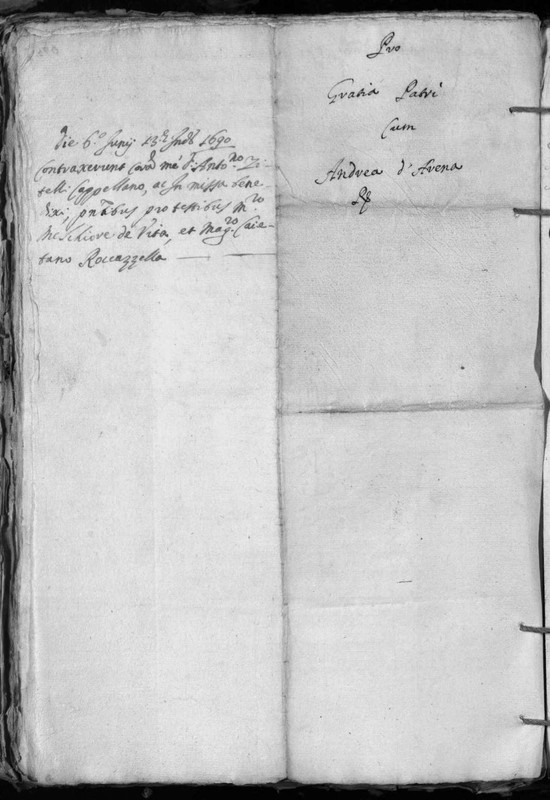 Die 6.o Junij 13.e Ind. 1690
Contraxerunt corā me D. Anton.no
telli Cappellano, ac in missa bene-
dixi, pntibus pro testibus M.ro
Melchiore de Vita, et Mag.ro Caie-
tano Roccazzella
Pro
Gratia Patri
Cum
Andrea d'Avena